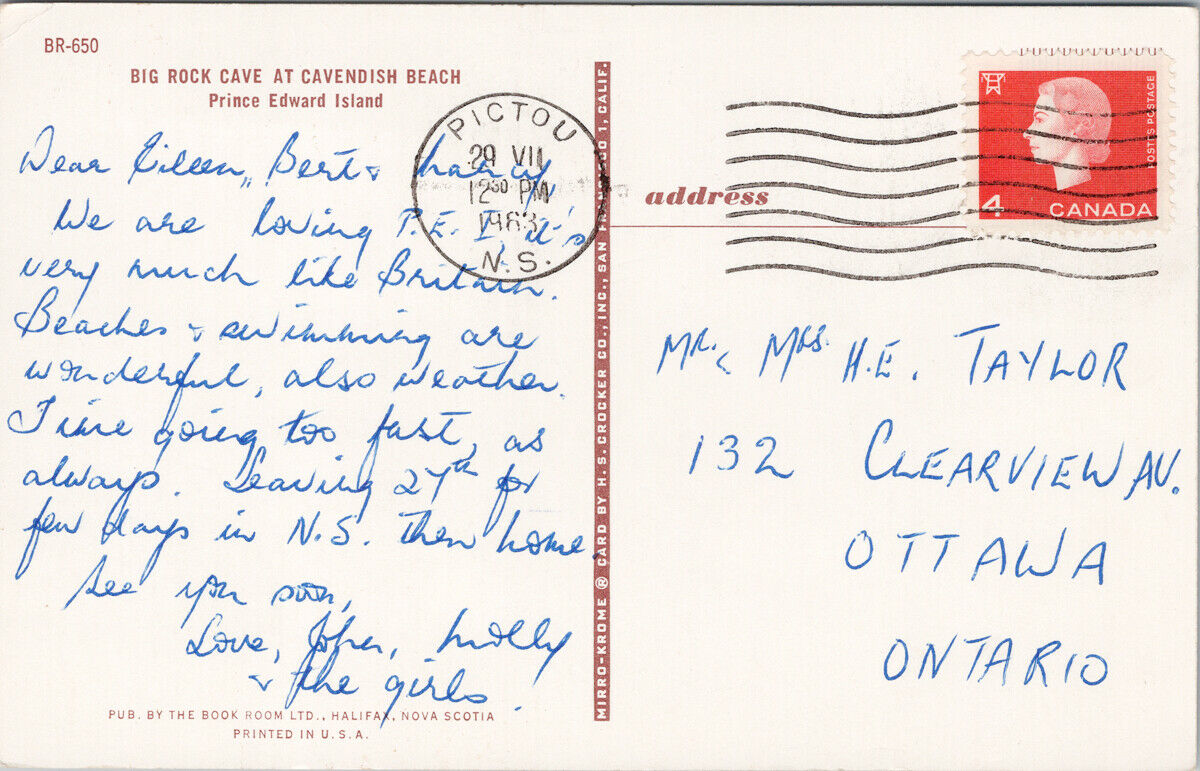 BR-650
BIG ROCK CAVE AT CAVENDISH BEACH
Prince Edward Island
Dear Eileen, Bert & Nancy,
We are loving P.E.I, it's
very much like Britain.
Beaches & swimming are
wonderful, also weather.
Time going too fast, as
always. Leaving 27th for
few days in N.S. then home.
See you soon,
Love, John, Molly
& the girls.
PUB. BY THE BOOK ROOM LTD., HALIFAX, NOVA SCOTIA
PRINTED IN U.S.A.
MIRRO-KROME ® CARD BY H. S. CROCKER CO., INC., SAN FRANCISCO 1, CALIF.
PICTOU
29 VII
12 30 PM
1963
N.S.
address
POSTES POSTAGE
4 CANADA
Mr. & Mrs. H.E. TAYLOR
132 CLEARVIEW AV.
OTTAWA
ONTARIO